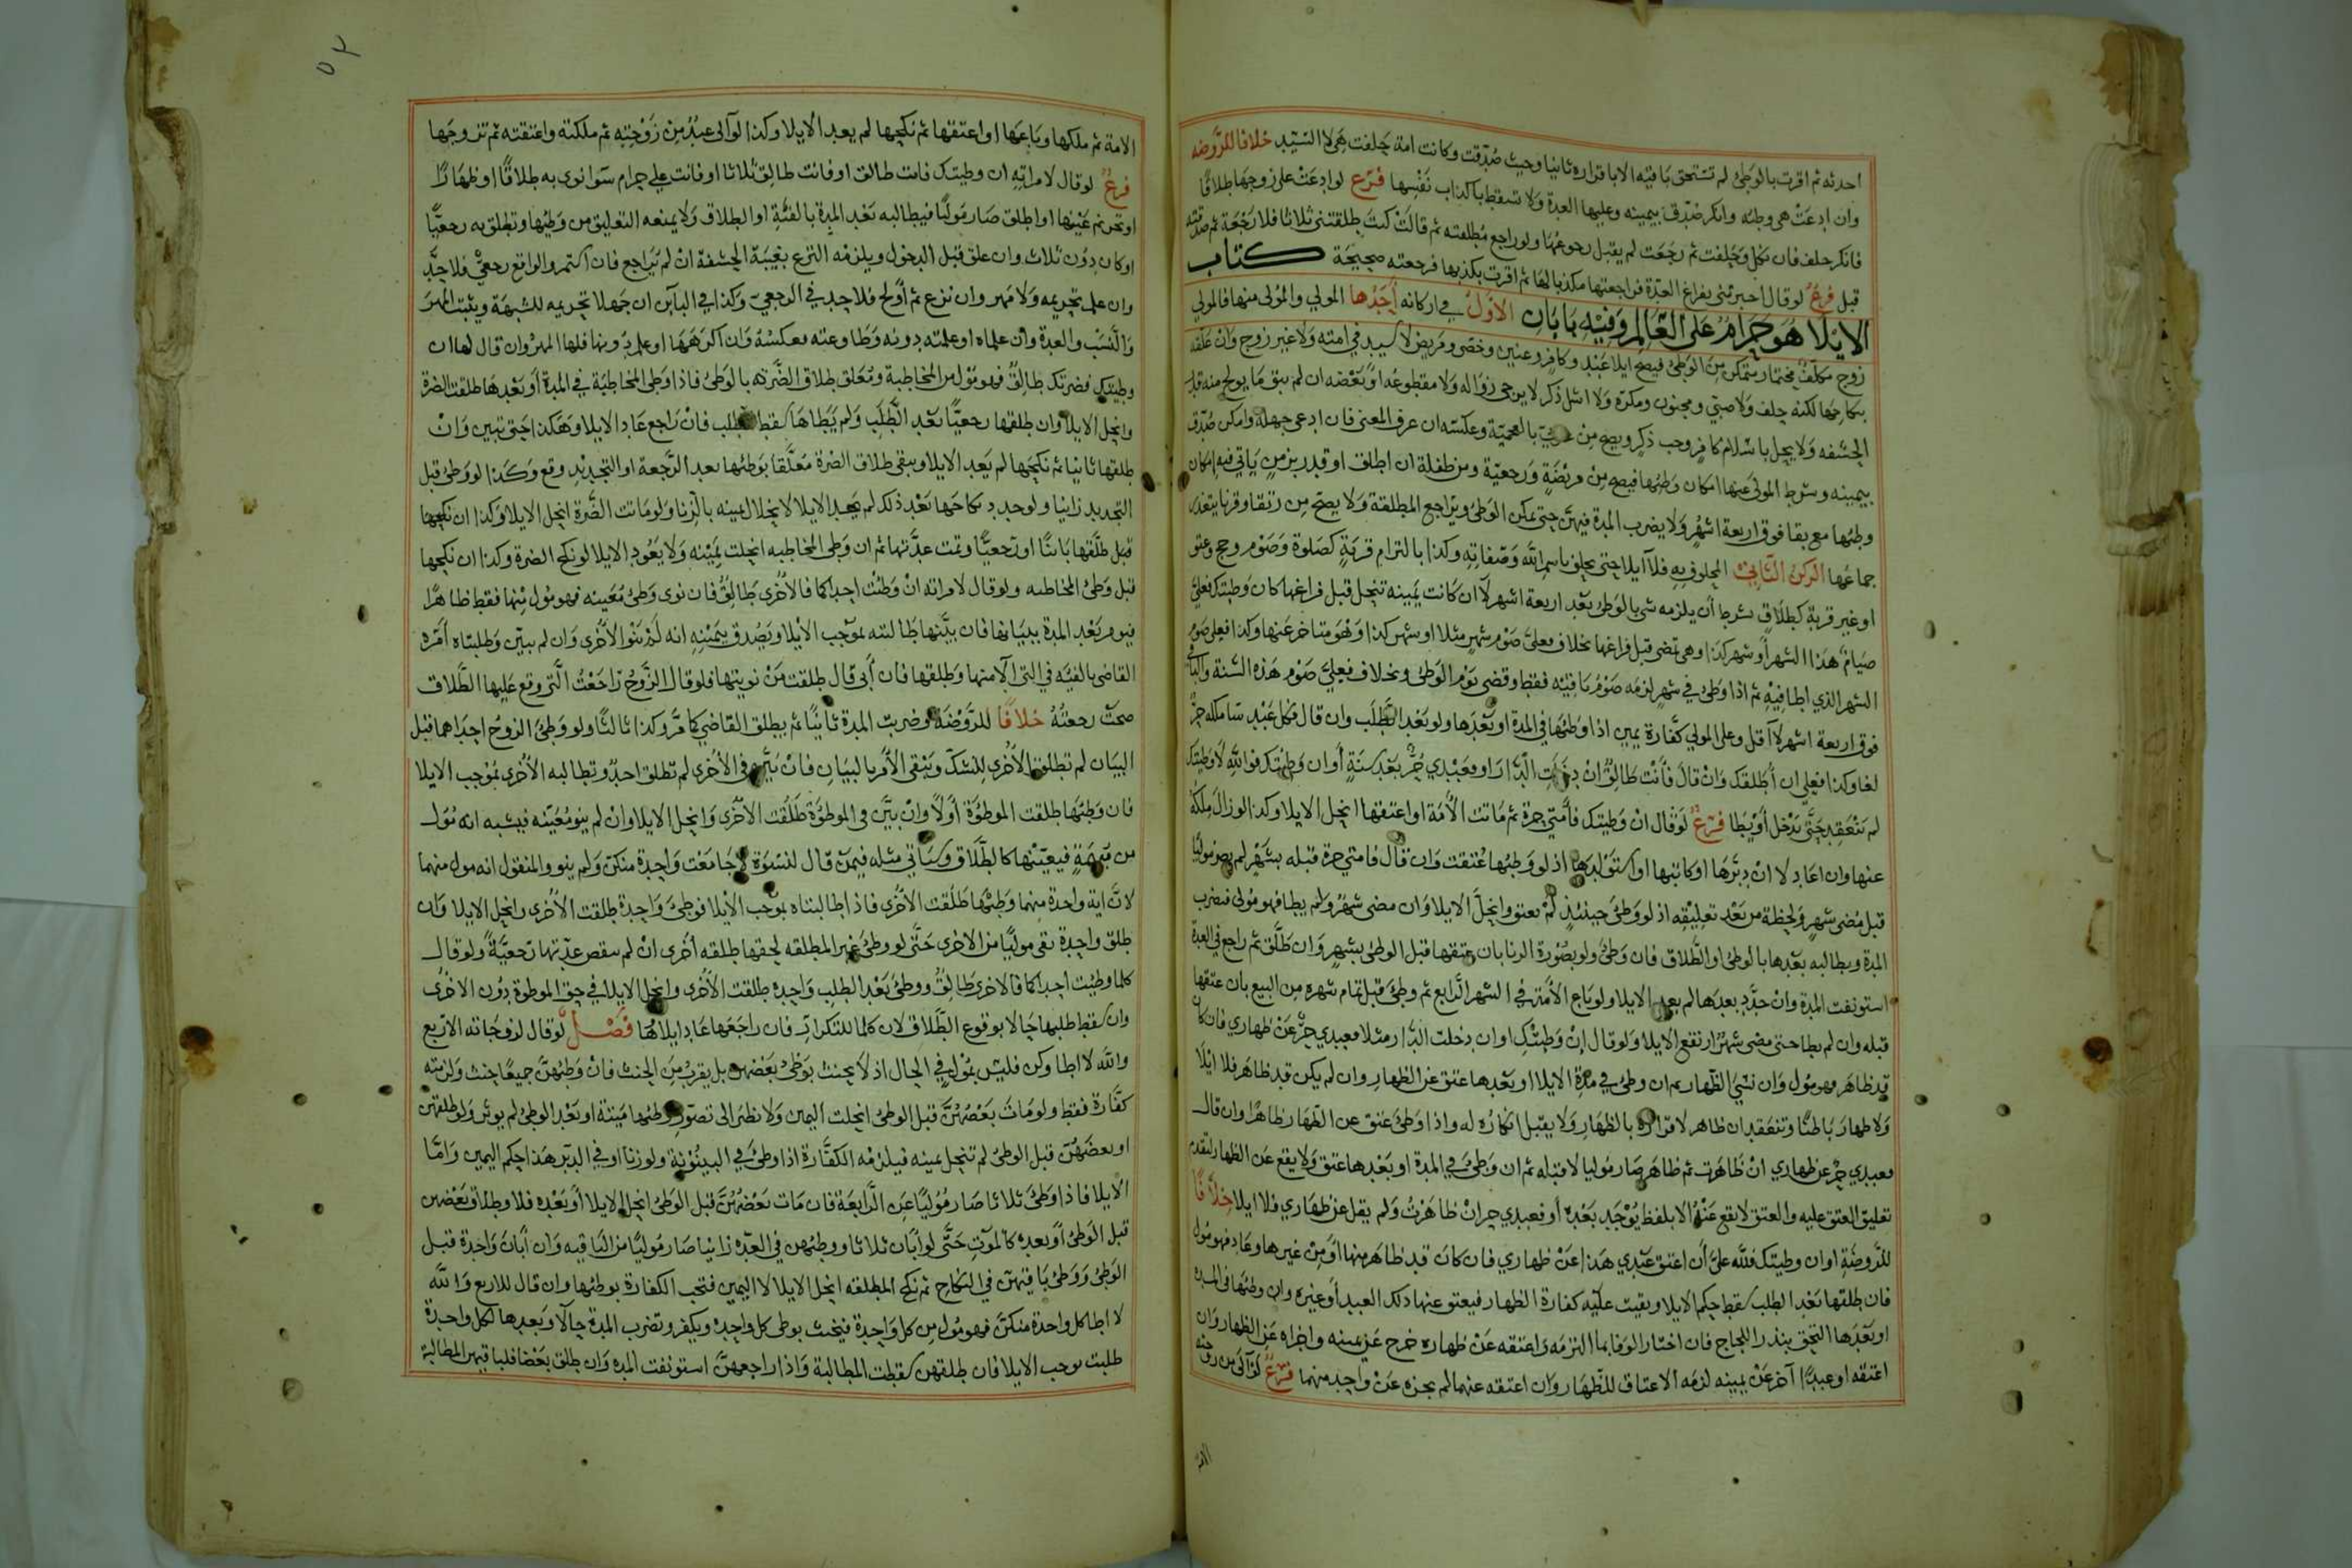 احدثه ثم اقرت بالوطئ لم تستحق باقيه الا باقراره ثانيا وحيث صدقت وكانت امة حلفت هي لا السيد خلافا للروضه
وان ادعت هي وطئه وانكر صدق بيمينه وعليها العدة ولا تسقط باكذاب نفسها فرع لو ادعت على زوجها طلاقا
فانكر حلف فان نكل وحلفت ثم رجعت لم يقبل رجوعها ولو راجع مطلقته ثم قالت كنت طلقتني ثلاثا فلا رجعة ثم صدقته
قبل فرع لو قال اخبرتني بفراغ العدة فراجعتها مكذبا لها ثم اقرت بكذبها فرجعته صحيحة كتاب
الايلا هو حرام على العالم وفيه بابان الاول في اركانه احدها المولي والمولى منها فالمولي
زوج مكلف مختار يتمكن من الوطئ فيصح ايلا عبد وكافر وعنين وخصي ومريض لا سيد في امته ولا غير زوج وان علقه
بنكاحها لكنه حلف ولا صبي ومجنون ومكره ولا اشل ذكر لا يرجى زواله ولا مقطوعه او بعضه ان لم يبق ما يولج منه قدر
الحشفه ولا ينحل باسلام كافر وجب ذكر ويصح من عربي بالعجمية وعكسه ان عرف المعنى فان ادعى جهله وامكن صدق
بيمينه وشرط المولى عنها امكان وطئها فيصح من مريضة ورجعية ومن طفلة ان اطلق او قدر بزمن ياتي فيه امكان
وطئها مع بقا فوق اربعة اشهر ولا يضرب المدة فيهن حتى يمكن الوطئ ويراجع المطلقة ولا يصح من رتقا وقرنا يتعذر
جماعها الركن الثاني المحلوف به فلا ايلا حتى يحلف باسم الله وصفاته وكذا بالتزام قربة كصلوة وصوم وحج وعتق
او غير قربة كطلاق بشرط ان يلزمه شي بالوطئ بعد اربعة اشهر لا ان كانت يمينه تنحل قبل فراغها كان وطيتك فعلي
صيام هذا الشهر او شهر كذا وهي تمضي قبل فراغها بخلاف فعلي صوم شهر مثلا او شهر كذا وهو متاخر عنها وكذا فعلي صوم
الشهر الذي اطا فيه ثم اذا وطئ في شهر لزمه صوم باقيه فقط وقضى يوم الوطئ وبخلاف فعلي صوم هذه السنة والباقي
فوق اربعة اشهر لا اقل وعلى المولي كفارة يمين اذا وطئها في المدة او بعدها ولو بعد الطلب وان قال فكل عبد ساملكه حر
لغا وكذا فعلي ان اطلقك وان قال فانت طالق ان دخلت الدار او فعبدي حر بعد سنة او ان وطئتك فوالله لا وطيتك
لم تنعقد حتى تدخل او يطا فرع لو قال ان وطيتك فامتي حرة ثم ماتت الامة او اعتقها انحل الايلا وكذا لو زال ملكه
عنها وان اعاد لا ان دبرها او كاتبها او استولدها اذ لو وطئها عتقت وان قال فامتي حرة قبله بشهر لم يصر موليا
قبل مضي شهر ولحظة من بعد تعليقه اذ لو وطئ حينئذ لم تعتق وانحل الايلا وان مضى شهر ولم يطا فهو مولي فنضرب
المدة ويطالبه بعدها بالوطئ او الطلاق فان وطئ ولو بصورة الزنا بان عتقها قبل الوطئ بشهر وان طلق ثم راجع في العدة
استونفت المدة وان جدد بعدها لم يعد الايلا ولو باع الامة في الشهر الرابع ثم وطئ قبل تمام شهره من البيع بان عتقها
قبله وان لم يطا حتى مضى شهر ارتفع الايلا ولو قال ان وطيتك او ان دخلت الدار مثلا فعبدي حر عن ظهاري فان كان
قد ظاهر فهو مول وان نسي الظهار ثم ان وطئ في مدة الايلا او بعدها عتق عن الظهار وان لم يكن قد ظاهر فلا ايلا
ولا ظهار باطنا وتنعقدان ظاهر لاقراره بالظهار ولا يقبل انكاره له واذا وطئ عتق عن الظهار ظاهرا وان قال
فعبدي حر عن ظهاري ان ظاهرت ثم ظاهر صار موليا لا قبله ثم ان وطئ في المدة او بعدها عتق ولا يقع عن الظهار لتقدم
تعليق العتق عليه والعتق لا يقع عنه الا بلفظ يوجد بعده او فعبدي حر ان ظاهرت ولم يقل عن ظهاري فلا ايلا خلافا
للروضة او ان وطيتك فلله علي ان اعتق عبدي هذا عن ظهاري فان كان قد ظاهر منها او من غيرها وعاد فهو مول
فان طلقها بعد الطلب سقط حكم الايلا وبقيت عليه كفارة الظهار فيعتق عنها ذلك العبد او غيره وان وطئها في المدة
او بعدها التحق بنذر اللجاج فان اختار الوفا بما التزمه واعتقه عن ظهاره خرج عن يمينه واجزاه عن الظهار وان
اعتقه او عبدا آخر عن يمينه لزمه الاعتاق للظهار وان اعتقه عنهما لم يجزه عن واحد منهما فرع لو آلى من زوجته
الامة ثم ملكها وباعها او اعتقها ثم نكحها لم يعد الايلا وكذا لو آلى عبد من زوجته ثم ملكته واعتقته ثم تزوجها
فرع لو قال لامراته ان وطيتك فانت طالق او فانت طالق ثلاثا او فانت علي حرام سوا نوى به طلاقا او ظهارا
او تحريم عينها او اطلق صار موليا فيطالبه بعد المدة بالفئة او الطلاق ولا يمنعه التعليق من وطيها وتطلق به رجعيا
او كان دون ثلاث وان علق قبل الدخول ويلزمه النزع بغيبة الحشفة ان لم يراجع فان استمر والواقع رجعي فلا حد
وان علم تحريمه ولا مهر وان نزع ثم اولج فلا حد في الرجعي وكذا في البائن ان جهلا تحريمه للشبهة ويثبت المهر
والنسب والعدة وان علماه او علمته دونه وطاوعته فعكسه وان اكرهها او علم دونها فلها المهر وان قال لها ان
وطيتك فضرتك طالق فهو مول من المخاطبة وتعلق طلاق الضرة بالوطئ فاذا وطئ المخاطبة في المدة او بعدها طلقت الضرة
وانحل الايلا وان طلقها رجعيا بعد الطلب ولم يطاها سقط الطلب فان راجع عاد الايلا وهكذا حتى تبين وان
طلقها ثانيا ثم نكحها لم يعد الايلا ويبقى طلاق الضرة معلقا بوطئها بعد الرجعة او التجديد وقع وكذا لو وطئ قبل
التجديد زانيا ولو جدد نكاحها بعد ذلك لم يعد الايلا لانحلال يمينه بالزنا ولو ماتت الضرة انحل الايلا وكذا ان نكحها
قبل طلقها بائنا او رجعيا وتمت عدتها ثم ان وطئ المخاطبه انحلت يمينه ولا يعود الايلا لو نكح الضرة وكذا ان نكحها
قبل وطئ المخاطبه ولو قال لامراتيه ان وطئت احداكما فالاخرى طالق فان نوى وطئ معينه فهو مول منها فقط ظاهرا
فيومر بعد المدة ببيانها فان بينها طالبته بموجب الايلا ويصدق بيمينه انه لم ينو الاخرى وان لم يبين وطلبتاه امره
القاضي بالفيه في التي آلا منها وطلقها فان ابى قال طلقت من نويتها فلو قال الزوج راجعت التي وقع عليها الطلاق
صحت رجعته خلافا للروضة وضربت المدة ثانيا ثم يطلق القاضي كما مر وكذا ثالثا ولو وطئ الزوج احداهما قبل
البيان لم تطلق الاخرى للشك ويبقى الامر بالبيان فان بين في الاخرى لم تطلق احد وتطالبه الاخرى بموجب الايلا
فان وطئها طلقت الموطوة اولا وان بين في الموطوة طلقت الاخرى وانحل الايلا وان لم ينو معينه فيشبه انه مول
من مبهمة فيعينها كالطلاق وسياتي مثله فيمن قال لنسوة لا جامعت واحدة منكن ولم ينو والمنقول انه مول منهما
لان اية واحدة منهما وطئها طلقت الاخرى فاذا طالبتاه بموجب الايلا فوطئ واحدة طلقت الاخرى وانحل الايلا وان
طلق واحدة بقي موليا من الاخرى حتى لو وطئ غير المطلقه لحقها طلقه اخرى ان لم تنقض عدتها رجعية ولو قال
كلما وطيت احداكما فالاخرى طالق ووطئ بعد الطلب واحده طلقت الاخرى وانحل الايلا في حق الموطوة دون الاخرى
وان سقط طلبها حالا بوقوع الطلاق لان كلما للتكرار فان راجعها عاد ايلاها فصل لو قال لزوجاته الاربع
والله لا اطاوكن فليس بمول في الحال اذ لا يحنث بوطئ بعضهن بل يقرب من الحنث فان وطئهن جميعا حنث ولزمته
كفارة فقط ولو مات بعضهن قبل الوطئ انحلت اليمين ولا نظر الى تصور وطئها ميتة او بعد الوطئ لم يوثر ولو طلقهن
او بعضهن قبل الوطئ لم تنحل يمينه فيلزمه الكفارة اذا وطئ في البينونة ولو زنا او في الدبر هذا حكم اليمين واما
الايلا فاذا وطئ ثلاثا صار موليا عن الرابعة فان مات بعضهن قبل الوطئ انحل الايلا او بعده فلا وطلاق بعضهن
قبل الوطئ او بعده كالموت حتى لو ابان ثلاثا ووطئهن في العدة زانيا صار موليا من الباقيه وان ابان واحدة قبل
الوطئ ووطئ باقيهن في النكاح ثم نكح المطلقه انحل الايلا لا اليمين فتجب الكفارة بوطئها وان قال للاربع والله
لا اطا كل واحدة منكن فهو مول من كل واحدة فيحنث بوطى كل واحده ويكفر وتضرب المدة حالا وبعدها لكل واحدة
طلبت بوجب الايلا فان طلقهن سقطت المطالبة واذا راجعهن استونفت المده وان طلق بعضا فلباقيهن المطالبة